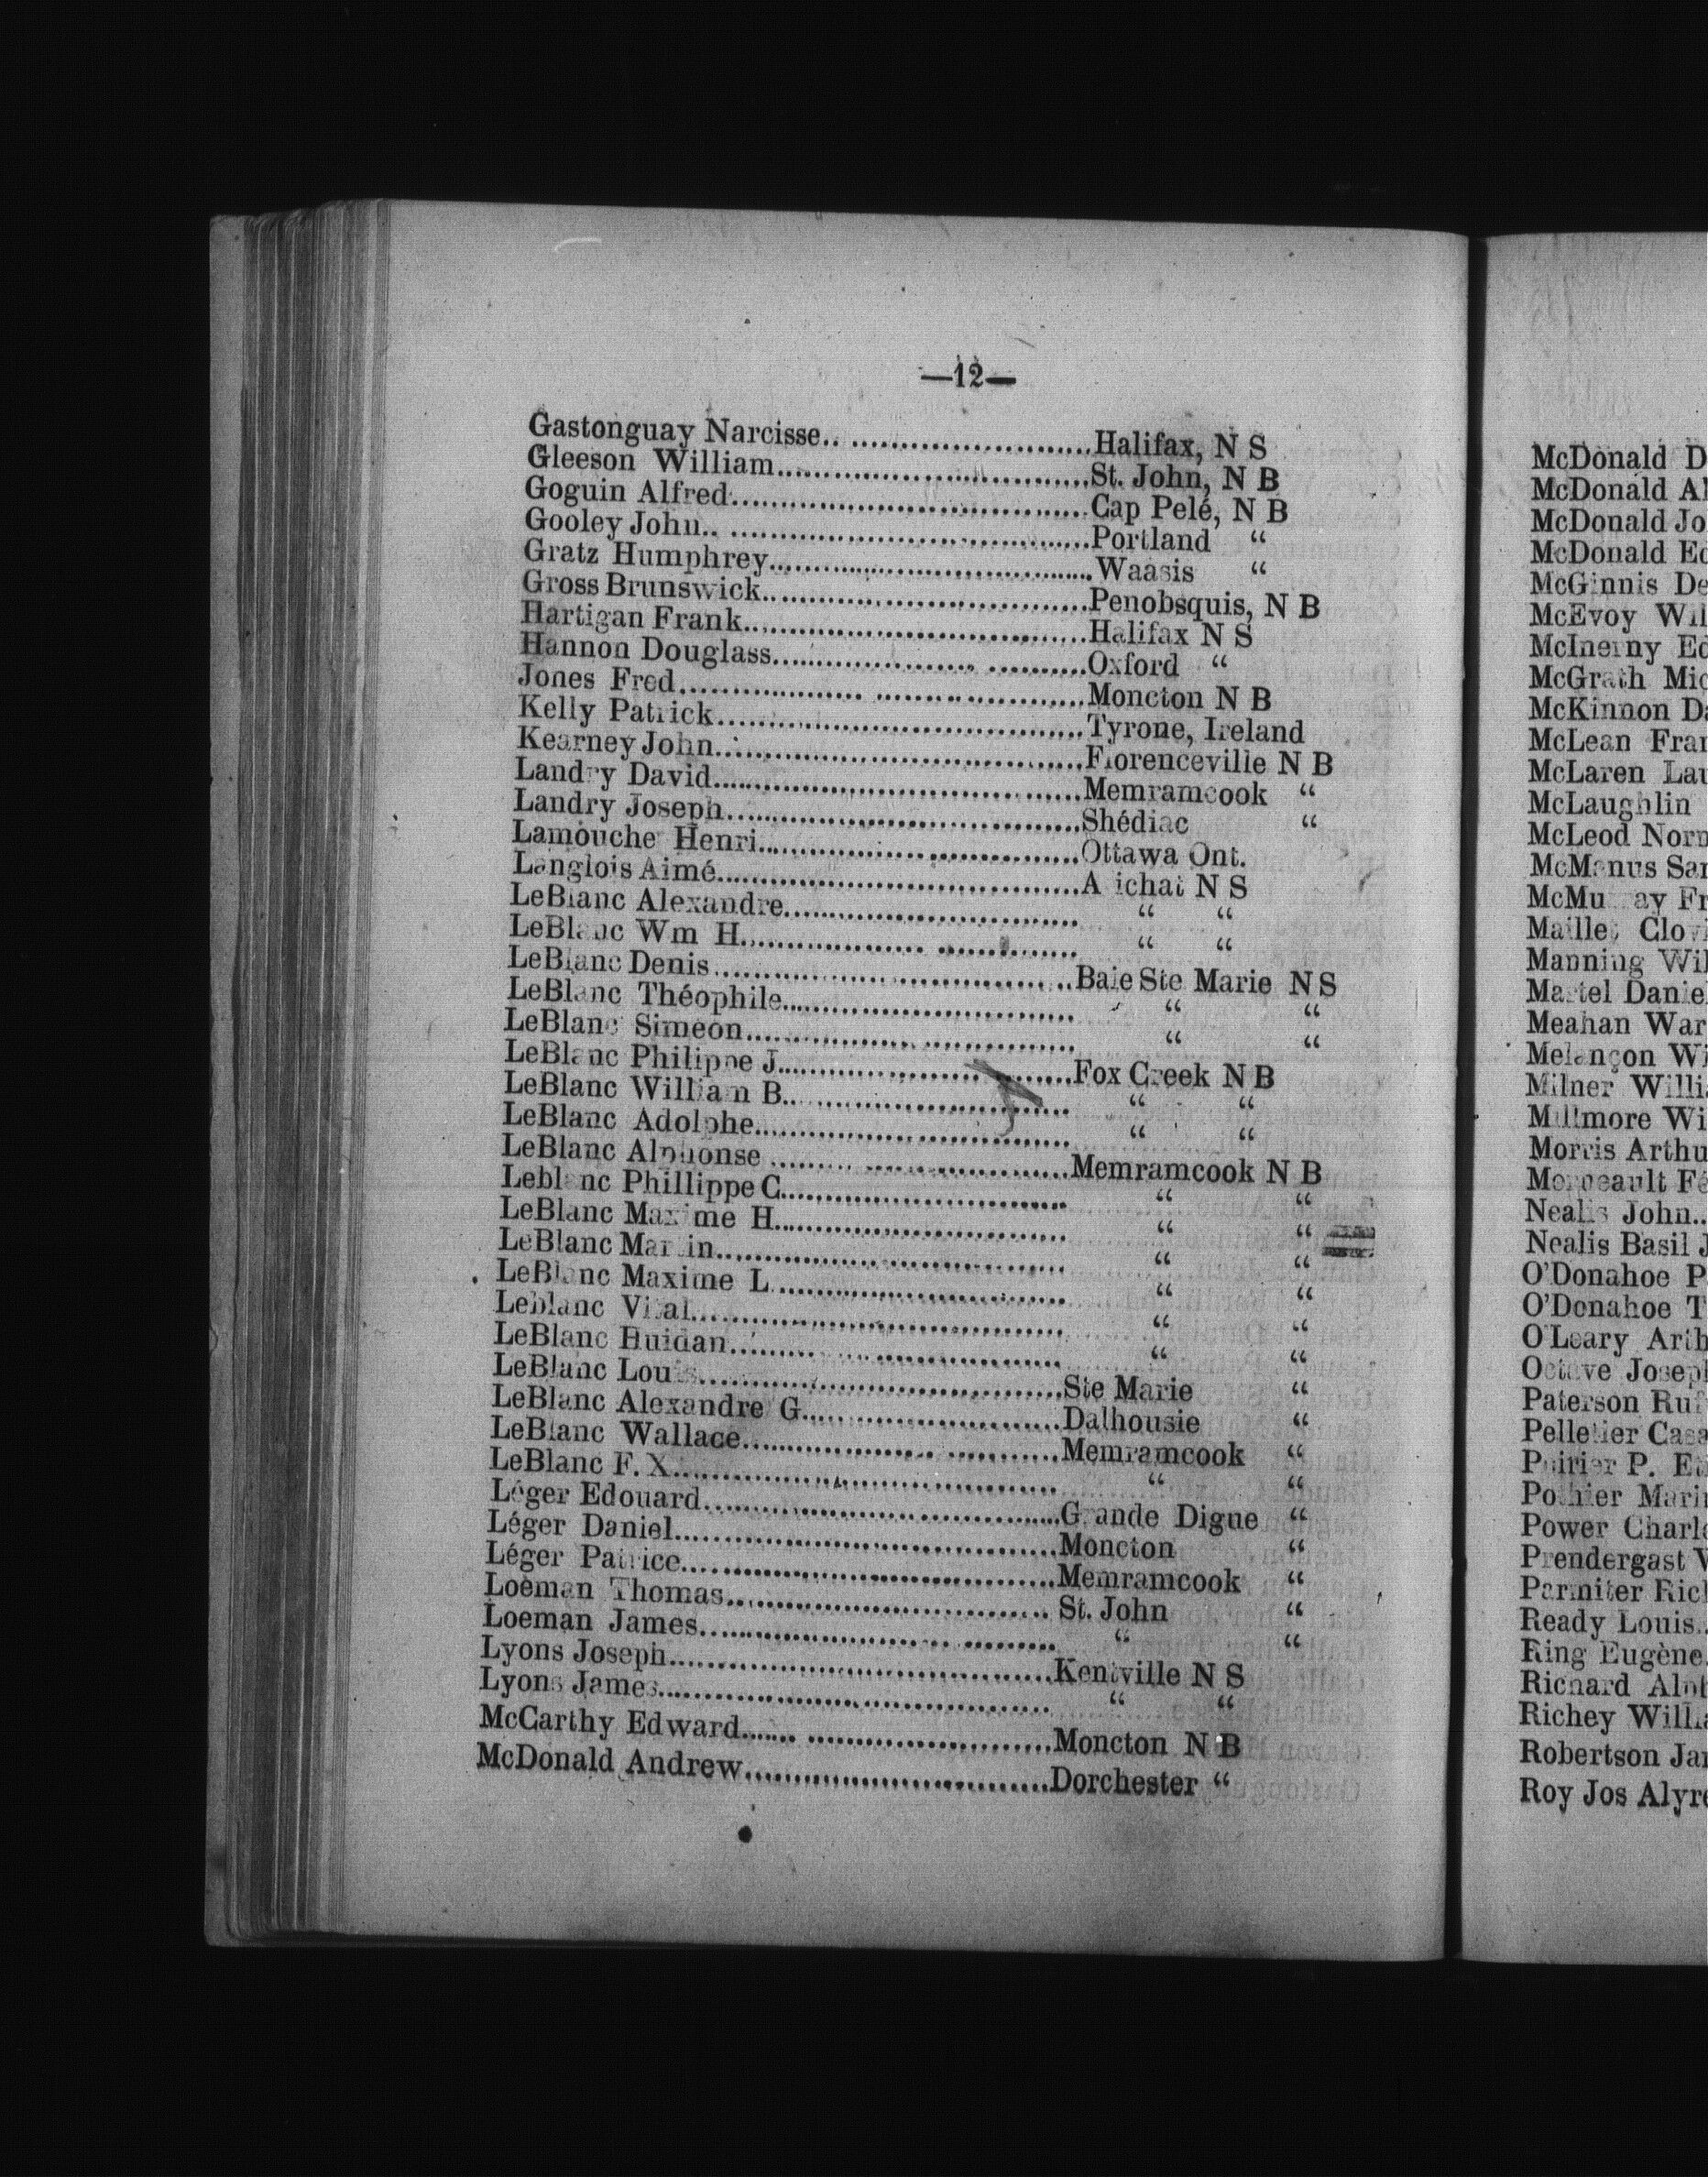 —12—
Gastonguay Narcisse.. ........................Halifax, N S
Gleeson William...............................St. John, N B
Goguin Alfred.................................Cap Pelé, N B
Gooley John.. ................................Portland “
Gratz Humphrey................................Waasis “
Gross Brunswick...............................Penobsquis, N B
Hartigan Frank................................Halifax N S
Hannon Douglass................... ..........Oxford “
Jones Fred................. ..................Moncton N B
Kelly Patrick.................................Tyrone, Ireland
Kearney John..................................Florenceville N B
Landry David..................................Memramcook “
Landry Joseph.................................Shédiac “
Lamouche Henri................................Ottawa Ont.
Langlois Aimé.................................A ichat N S
LeBlanc Alexandre............................. “ “
LeBlanc Wm H.................. .............. “ “
LeBlanc Denis.................................Baie Ste Marie N S
LeBlanc Théophile............................. “ “
LeBlanc Simeon................................ “ “
LeBlanc Philippe J............................Fox Creek N B
LeBlanc William B............................. “ “
LeBlanc Adolphe............................... “ “
LeBlanc Alphonse ......... ...................Memramcook N B
Leblanc Phillippe C........................... “ “
LeBlanc Maxime H.............................. “ “
LeBlanc Mar in................................ “ “
LeBlanc Maxime L.............................. “ “
Leblanc Vital................................. “ “
LeBlanc Huidan......... ...................... “ “
LeBlanc Louis.................................Ste Marie “
LeBlanc Alexandre G...........................Dalhousie “
LeBlanc Wallace................... ...........Memramcook “
LeBlanc F. X.................................. “ “
Léger Edouard.................................Grande Digue “
Léger Daniel..................................Moncton “
Léger Patrice.................................Memramcook “
Loeman Thomas................................. St. John “
Loeman James...................... .......... “ “
Lyons Joseph..................................Kentville N S
Lyons James................................... “ “
McCarthy Edward....... .......................Moncton N B
McDonald Andrew...............................Dorchester “
McDonald D
McDonald Al
McDonald Jo
McDonald Ed
McGinnis De
McEvoy Wil
McInerny Ed
McGrath Mic
McKinnon Da
McLean Fran
McLaren Lau
McLaughlin
McLeod Norm
McManus Sar
McMu ay Fr
Maillet Clo
Manning Wil
Martel Daniel
Meahan War
Melançon Wi
Milner Willia
Millmore Wi
Morris Arthu
Fé
Nealis John..
Nealis Basil J
O'Donahoe P
O'Donahoe T
O'Leary Arth
Octave Joseph
Paterson Ruf
Pelletier Casa
Poirier P. Et
Pothier Mari
Power Charle
Prendergast W
Parmiter Rich
Ready Louis..
Ring Eugène.
Richard Alph
Richey Willia
Robertson Jam
Roy Jos Alyre